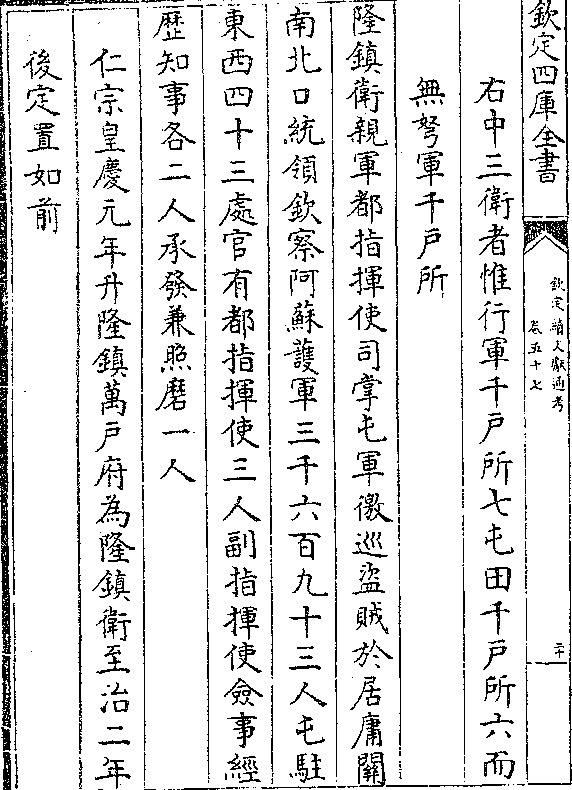 欽定四庫全書
欽定續文獻通考
卷五十七
二十
右中三衛者惟行軍千戸所七屯田千戸所六而
無弩軍千戸所
隆鎮衛親軍都指揮使司掌屯軍徼巡盜賊於居庸關
南北口統領欽察阿蘇䕶軍三千六百九十三人屯駐
東西四十三處官有都指揮使三人副指揮使僉事經
歴知事各二人承發兼照磨一人
仁宗皇慶元年升隆鎮萬戸府為隆鎮衛至治二年
後定置如前